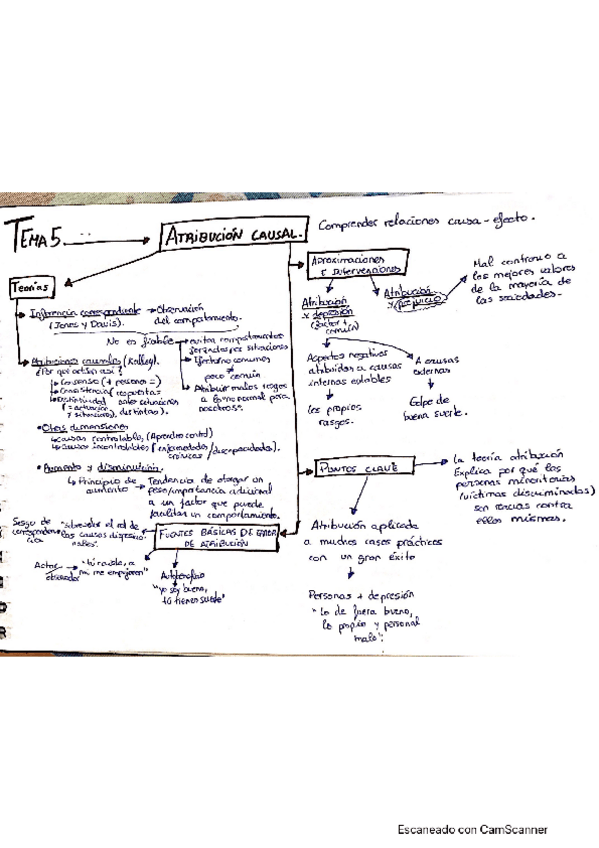 TEMA 5
ATRIBUCIÓN CAUSAL.
Comprender relaciones causa-efecto.
Teorías
Inferencia correspondiente → Observación
(Jones y Davis). del comportamiento.
No es fiable
evitar comportamientos
forzados por situaciones
Efectos no comunes
≠
poco común
Atribuir malos rasgos
a lo no normal para
nosotros.
Atribuciones causales (Kelley).
¿Por qué actúan así?
Consenso (+ personas =)
Consistencia
Distintividad
(≠ actuación
≠ situaciones).
distintas).
• Otras dimensiones
causas controlables (Aprender control)
Causas incontrolables (enfermedades / discapacidades).
crónicas
• Aumento y disminución.
Principio de → Tendencia de otorgar un
aumento peso/importancia adicional
a un factor que puede
facilitar un comportamiento.
FUENTES BÁSICAS DE ERROR
DE ATRIBUCIÓN
Sesgo de
corresponden-
cia
"sobrevalor el rol de
las causas disposicio-
nales".
Actor
observador
mí me empujaron"
"yo soy bueno,
tú tienes suerte"
Aproximaciones
e intervenciones
Atribución
y depresión
(factor +
común)
Aspectos negativos
atribuidos a causas
internas estables
Los propios
rasgos.
A causas
externas
Golpe de
buena suerte.
Atribución
y prejuicio
Mal contrario a
los mejores valores
de la mayoría de
las sociedades.
PUNTOS CLAVE
La teoría atribución
Explica por qué las
personas minoritarias
(víctimas discriminadas)
son reacias contra
ellos mismos.
Atribución aplicada
a muchos casos prácticos
con un gran éxito
Personas + depresión
"Lo de fuera bueno,
lo propio y personal
malo".
Escaneado con CamScanner